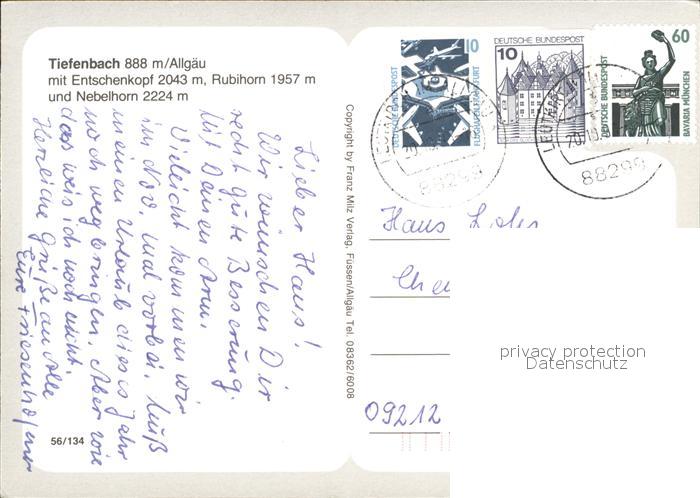 Tiefenbach 888 m/Allgäu
mit Entschenkopf 2043 m, Rubihorn 1957 m
und Nebelhorn 2224 m
Lieber Hans!
Wir wünschen Dir
recht gute Besserung
mit Deinen Arm.
Vieleicht kommen wir
im Nov. mal vorbei. Muß
meinen Urlaub dieses Jahr
noch wegbringen. Aber wie
das weis ich noch nicht.
Herzliche Grüße an Alle
Eure Friesenhofener
56/134
Copyright by Franz Milz Verlag, Füssen/Allgäu Tel. 08362/6008
10
DEUTSCHE BUNDESPOST
FLUGHAFEN FRANKFURT
DEUTSCHE BUNDESPOST
10
60
DEUTSCHE BUNDESPOST
BAVARIA MÜNCHEN
88299
88299
Hans
09212
privacy protection
Datenschutz